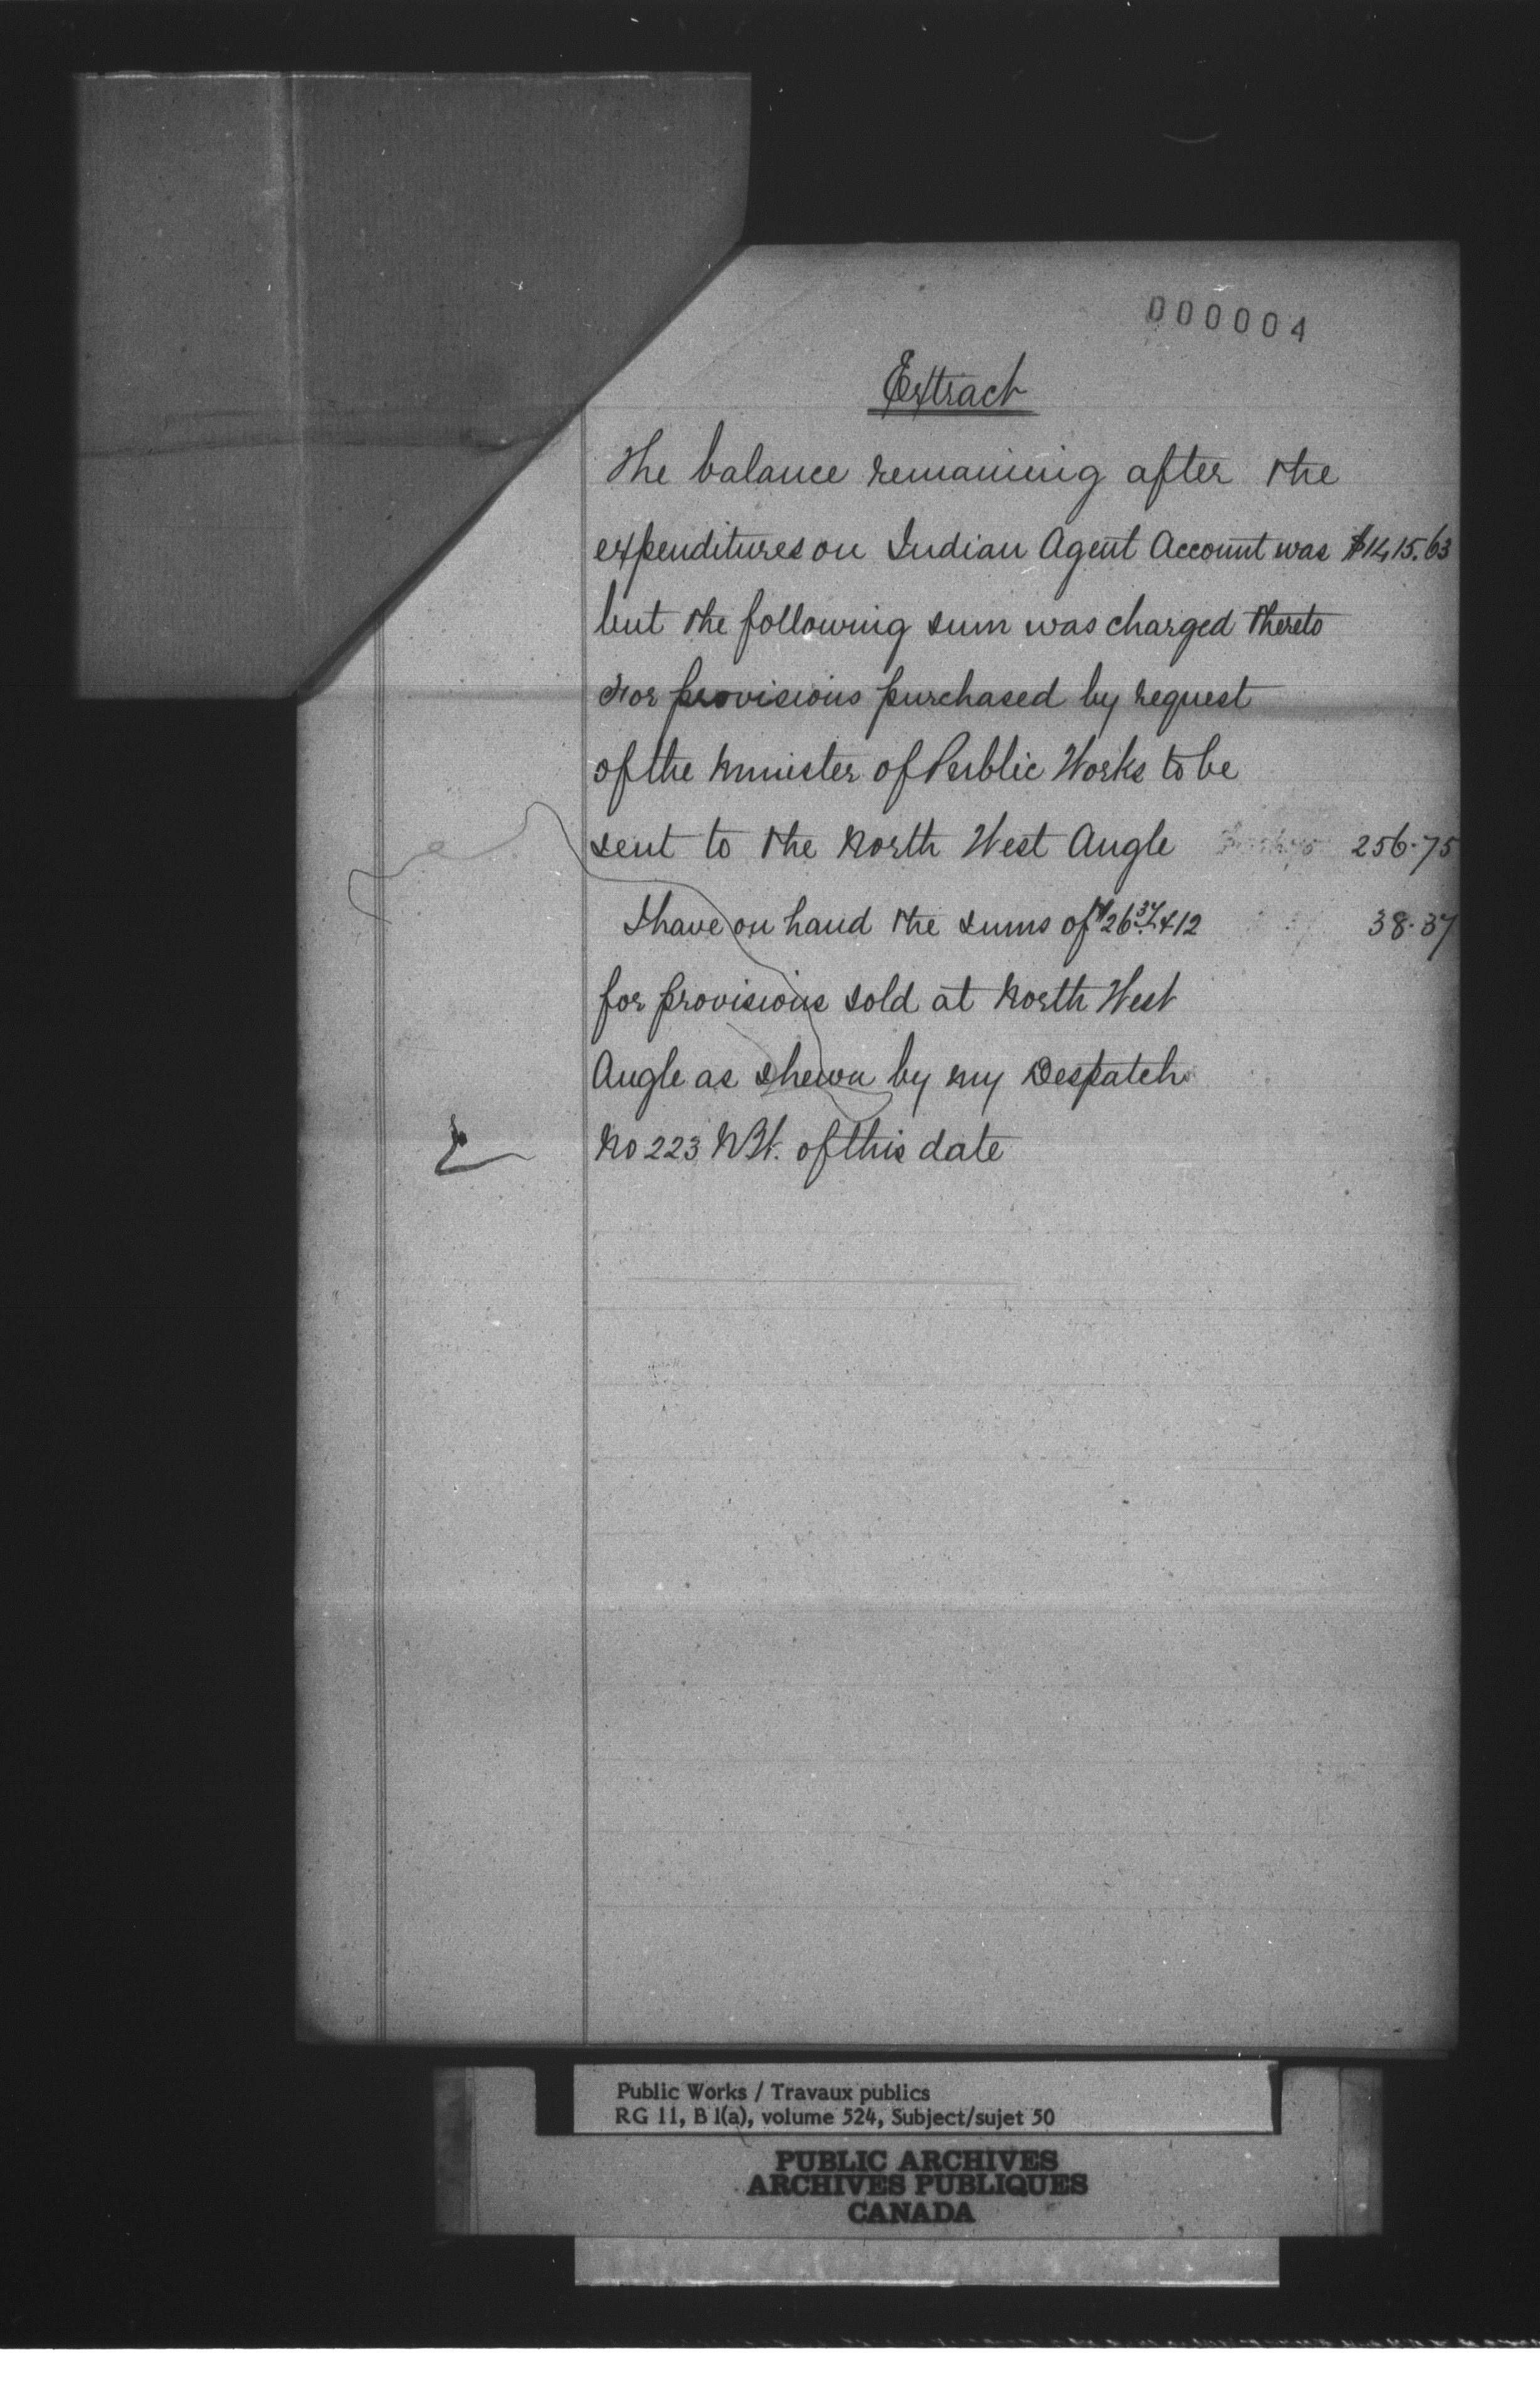 000004
Extract
The balance remaining after the
expenditures on Indian Agent Account was $1415.63
but the following sum was charged thereto
For provisions purchased by request
of the Minister of Public Works to be
sent to the North West Angle 256.75
I have on hand the sums of $26.37 & 12 38.37
for provisions sold at North West
Angle as shewn by my Despatch
No 223 of this date
Public Works / Travaux publics
RG 11, B 1(a), volume 524, Subject/sujet 50
PUBLIC ARCHIVES
ARCHIVES PUBLIQUES
CANADA